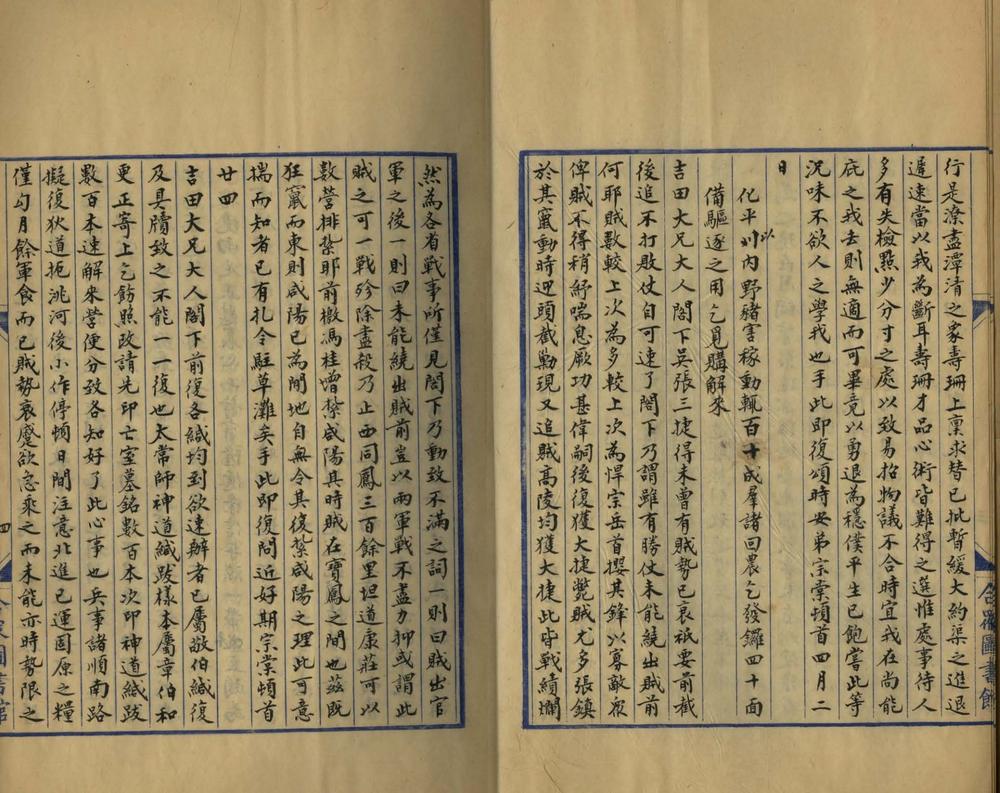 行是潦盡潭清之象壽珊上禀求替已批暫緩大約渠之進退
遲速當以我為斷耳壽珊才品心術皆難得之選惟處事待人
多有失檢點少分寸之處以致易招物議不合時宜我在尚能
庇之我去則無適而可畢竟以勇退為穩僕平生已飽嘗此等
况味不欲人之學我也手此即復頌時安弟宗棠頓首四月二
日
化平川以內野豬害稼動輒百十成羣諸回農乞發鑼四十面
備驅逐之用乞覓購解來
吉田大兄大人閣下吳張三捷得未曾有賊勢已衰祇要前截
後追不打敗仗自可速了閣下乃謂雖有勝仗未能繞出賊前
何耶賊數較上次為多較上次為悍宗岳首攖其鋒以寡敵眾
俾賊不得稍紓喘息厥功甚偉嗣後復獲大捷斃賊尤多張鎮
於其竄動時迎頭截勦現又追賊高陵均獲大捷此皆戰績爛
然為各省戰事所僅見閣下乃動致不滿之詞一則曰賊出官
軍之後一則曰未能繞出賊前豈以兩軍戰不盡力抑或謂此
賊之可一戰殄除盡殺乃止西同鳳三百餘里坦道康莊可以
數營排紮耶前撤馮桂增紮咸陽其時賊在寶鳳之間也茲既
狂竄而東則咸陽已為閒地自無令其復紮咸陽之理此可意
揣而知者已有札令駐草灘矣手此即復問近好期宗棠頓首
廿四
吉田大兄大人閣下前復各緘均到欲速辦者已屬敬伯緘復
及具牘致之不能一一復也太常師神道緘跋樣本屬章伯和
更正寄上乞飭照改請先印亡室墓銘數百本次印神道緘跋
數百本速解來營便分致各知好了此心事也兵事諸順南路
擬復狄道扼洮河後小作停頓日間注意北進已運固原之糧
僅勾月餘軍食而已賊勢衰蹙欲急乘之而未能亦時勢限之
四
合眾圖書館